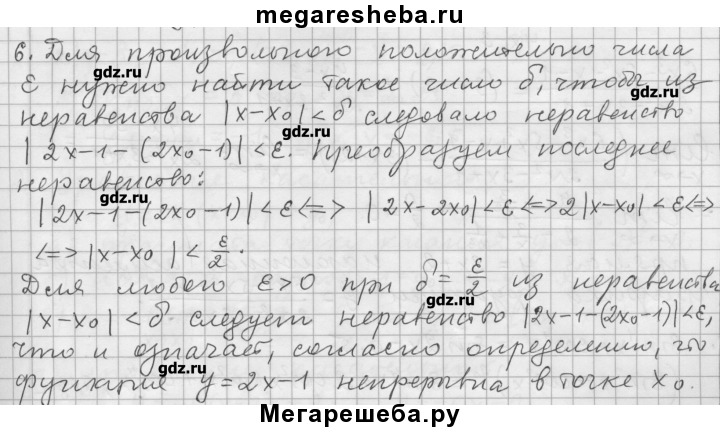 megaresheba.ru
6. Для произвольного положительно числа
gdz.ru
ε нужно найти такое число δ, чтобы из
gdz.ru
неравенства |x-x₀| < δ следовало неравенство
gdz.ru
|2x-1-(2x₀-1)| < ε. Преобразуем последнее
неравенство:
gdz.ru
|2x-1-(2x₀-1)| < ε <=> |2x-2x₀| < ε <=> 2|x-x₀| < ε <=>
<=> |x-x₀| < ε/2.
Для любого ε > 0 при δ = ε/2 из неравенства
gdz.ru
|x-x₀| < δ следует неравенство |2x-1-(2x₀-1)| < ε,
что и означает, согласно определению, что
gdz.ru
функция y = 2x-1 непрерывна в точке x₀.
Мегарешеба.ру